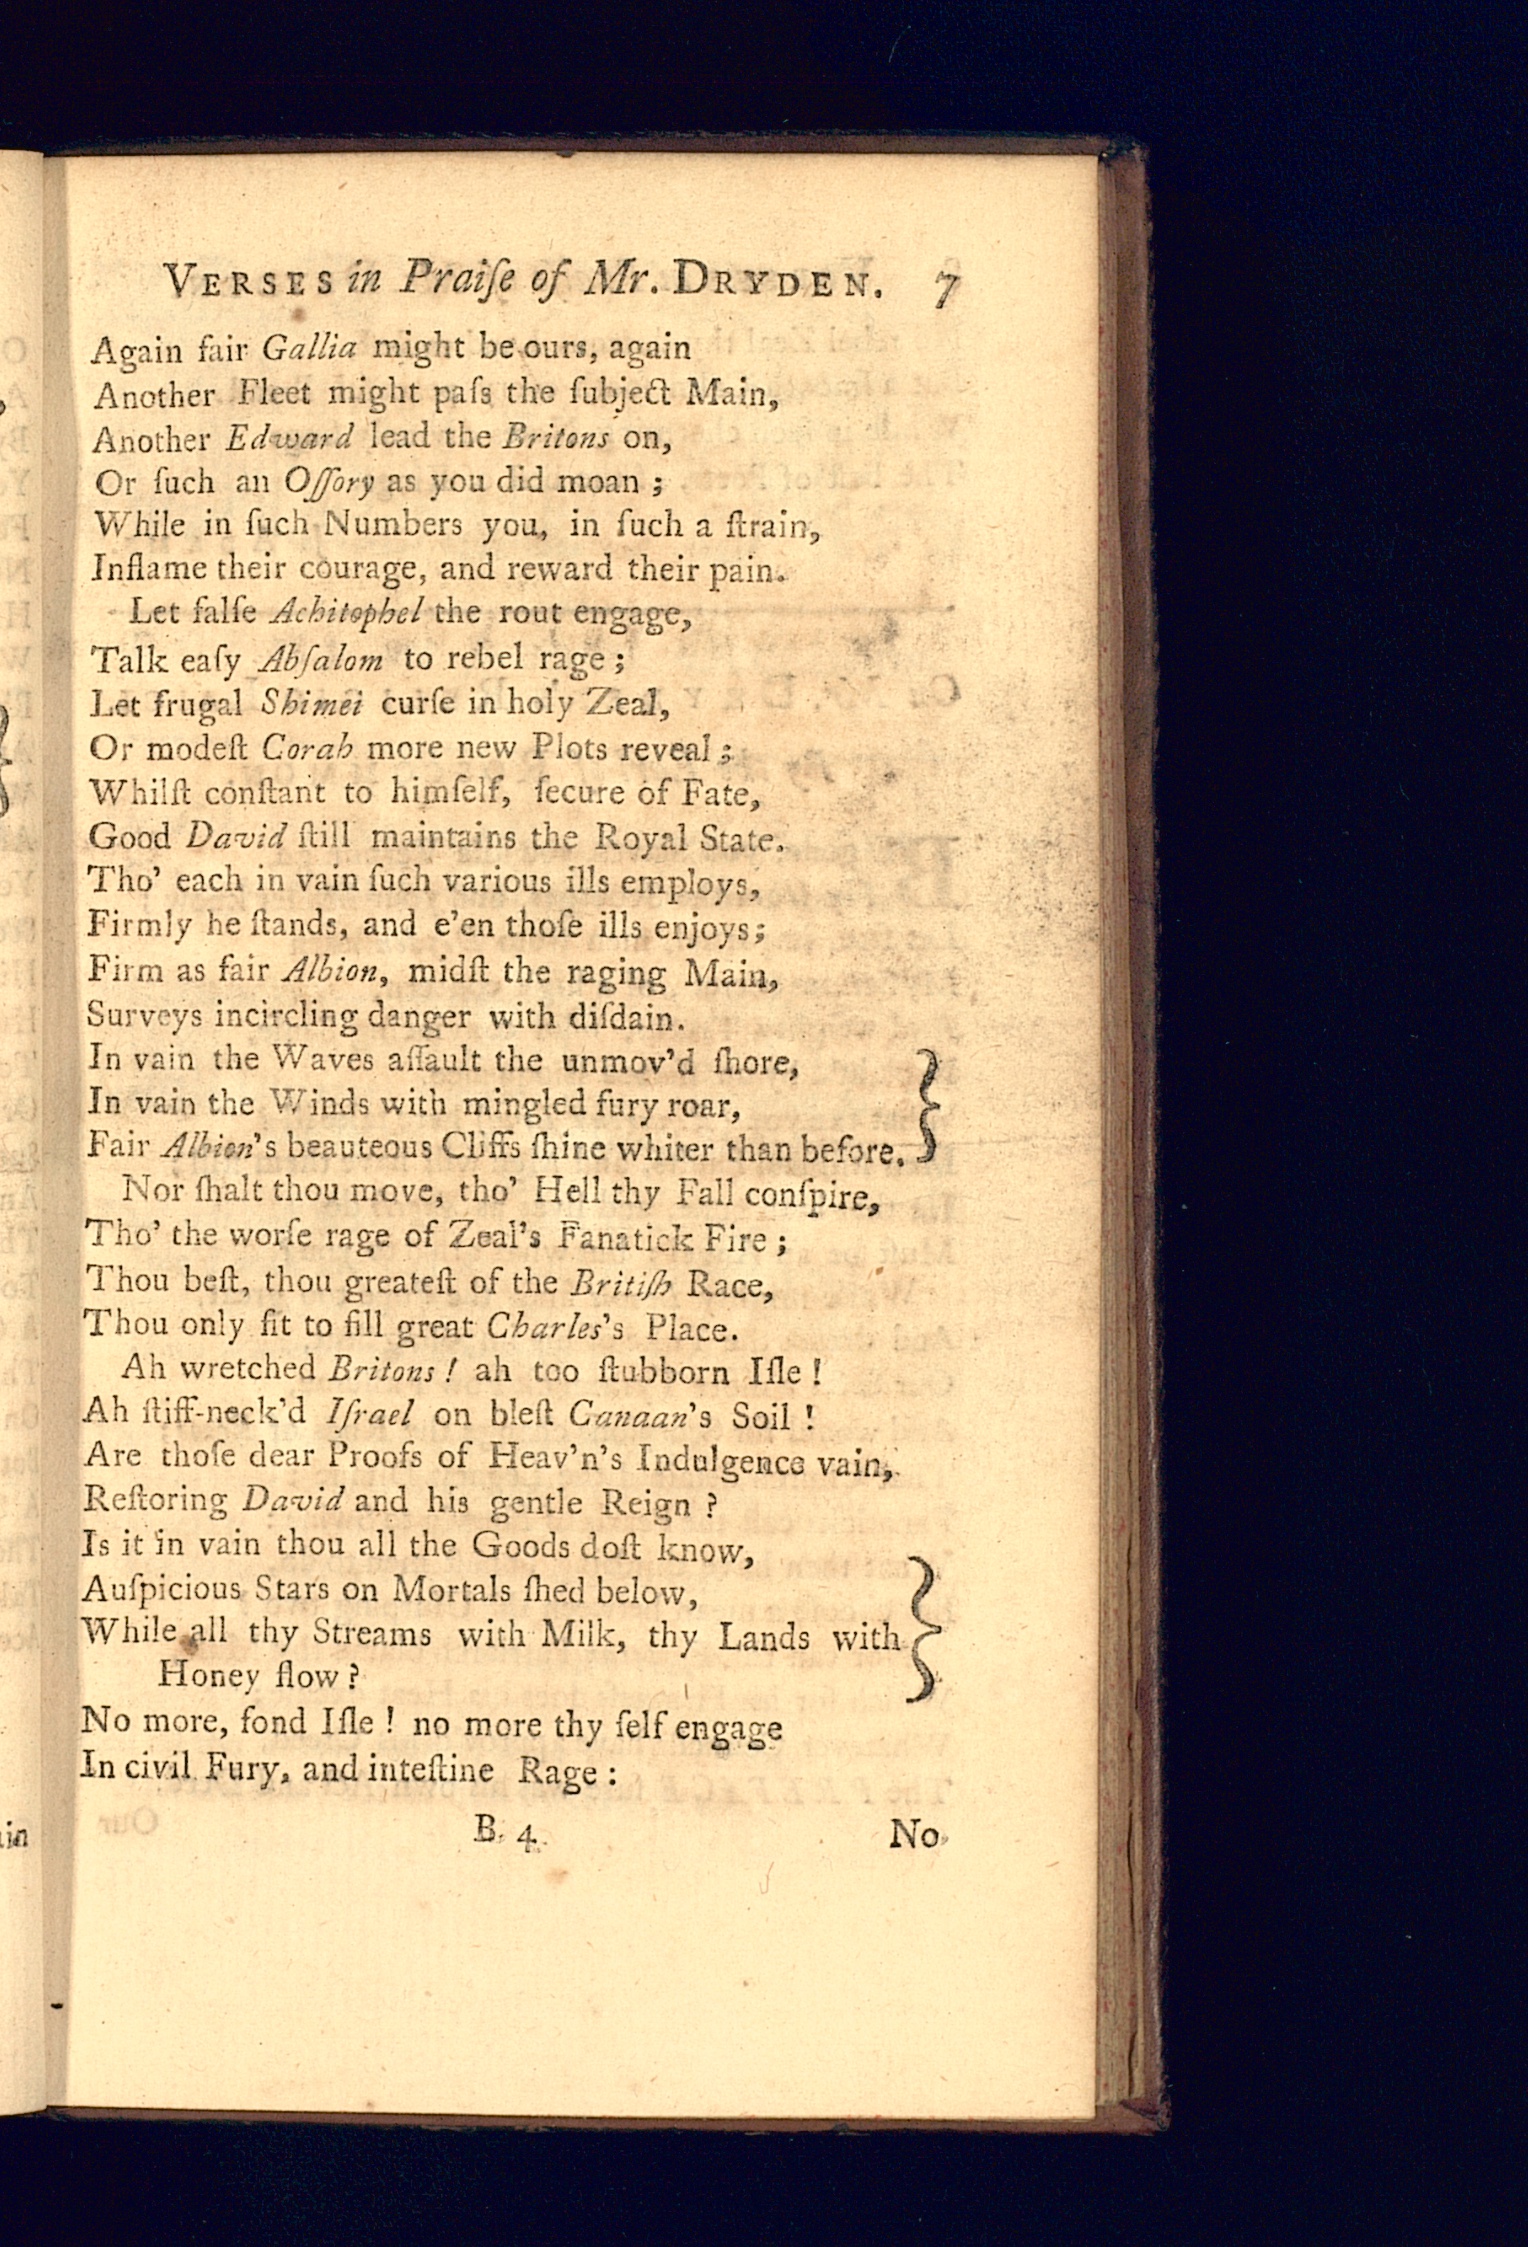 VERSES in Praiſe of Mr. DRYDEN. 7
Again fair Gallia might be ours, again
Another Fleet might paſs the ſubject Main,
Another Edward lead the Britons on,
Or ſuch an Oſſory as you did moan ;
While in ſuch Numbers you, in ſuch a ſtrain,
Inflame their courage, and reward their pain.
Let falſe Achitophel the rout engage,
Talk eaſy Abſalom to rebel rage ;
Let frugal Shimei curſe in holy Zeal,
Or modeſt Corah more new Plots reveal ;
Whilſt conſtant to himſelf, ſecure of Fate,
Good David ſtill maintains the Royal State.
Tho' each in vain ſuch various ills employs,
Firmly he ſtands, and e'en thoſe ills enjoys;
Firm as fair Albion, midſt the raging Main,
Surveys incircling danger with diſdain.
In vain the Waves aſſault the unmov'd ſhore,
In vain the Winds with mingled fury roar,
Fair Albion's beauteous Cliffs ſhine whiter than before.
Nor ſhalt thou move, tho' Hell thy Fall conſpire,
Tho' the worſe rage of Zeal's Fanatick Fire ;
Thou beſt, thou greateſt of the Britiſh Race,
Thou only fit to fill great Charles's Place.
Ah wretched Britons ! ah too ſtubborn Iſle !
Ah ſtiff-neck'd Iſrael on bleſt Canaan's Soil !
Are thoſe dear Proofs of Heav'n's Indulgence vain,
Reſtoring David and his gentle Reign ?
Is it in vain thou all the Goods doſt know,
Auſpicious Stars on Mortals ſhed below,
While all thy Streams with Milk, thy Lands with
Honey flow ?
No more, fond Iſle ! no more thy ſelf engage
In civil Fury, and inteſtine Rage :
B 4 No